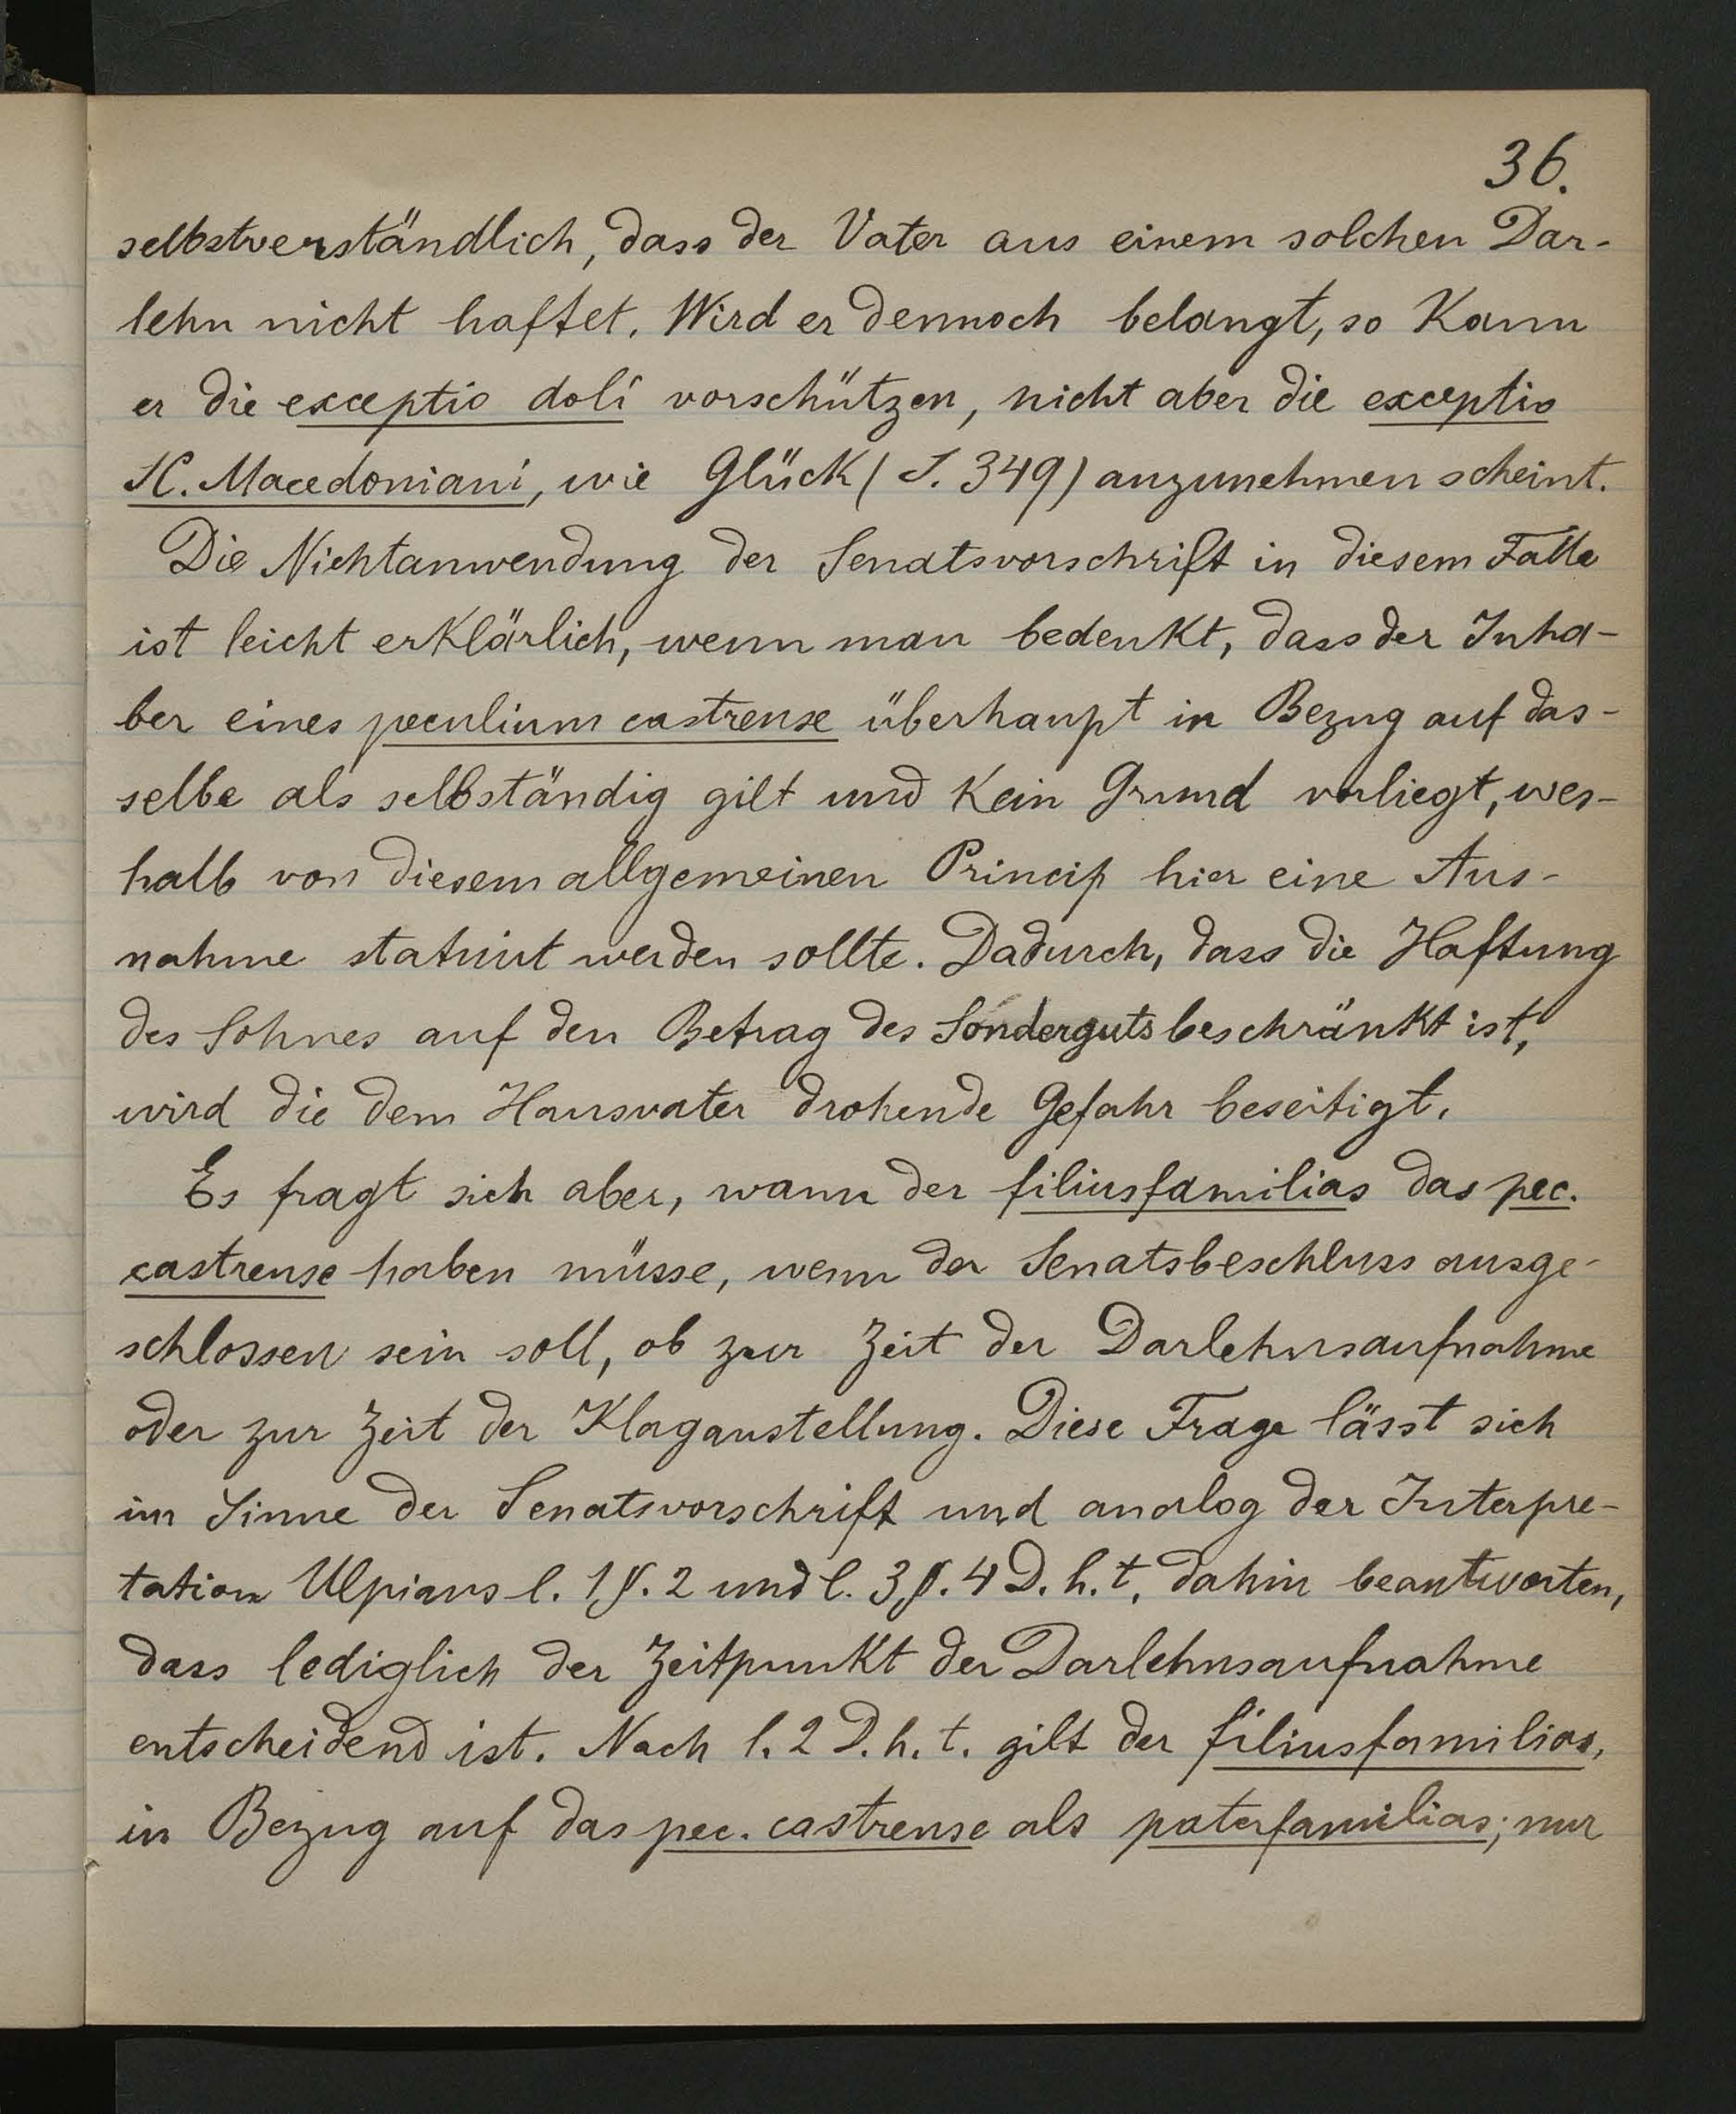 36.
selbstverständlich, dass der Vater aus einem solchen Dar-
lehn nicht haftet. Wird er dennoch belangt, so kann
er die exceptio doli vorschützen, nicht aber die exceptio
SC. Macedoniani, wie Glück (S. 349) anzunehmen scheint.
Die Nichtanwendung der Senatsvorschrift in diesem Falle
ist leicht erklärlich, wenn man bedenkt, dass der Inha-
ber eines peculium castrense überhaupt in Bezug auf das-
selbe als selbständig gilt und kein Grund vorliegt, wes-
halb von diesem allgemeinen Princip hier eine Aus-
nahme statuirt werden sollte. Dadurch, dass die Haftung
des Sohnes auf den Betrag des Sonderguts beschränkt ist,
wird die dem Hausvater drohende Gefahr beseitigt.
Es fragt sich aber, wann der filiusfamilias das pec.
castrense haben müsse, wenn der Senatsbeschluss ausge-
schlossen sein soll, ob zur Zeit der Darlehnsaufnahme
oder zur Zeit der Klaganstellung. Diese Frage lässt sich
im Sinne der Senatsvorschrift und analog der Interpre-
tation Ulpians l. 1 §. 2 und l. 3 §. 4 D. h. t. dahin beantworten,
dass lediglich der Zeitpunkt der Darlehnsaufnahme
entscheidend ist. Nach l. 2 D. h. t. gilt der filiusfamilias,
in Bezug auf das pec. castrense als paterfamilias; nur